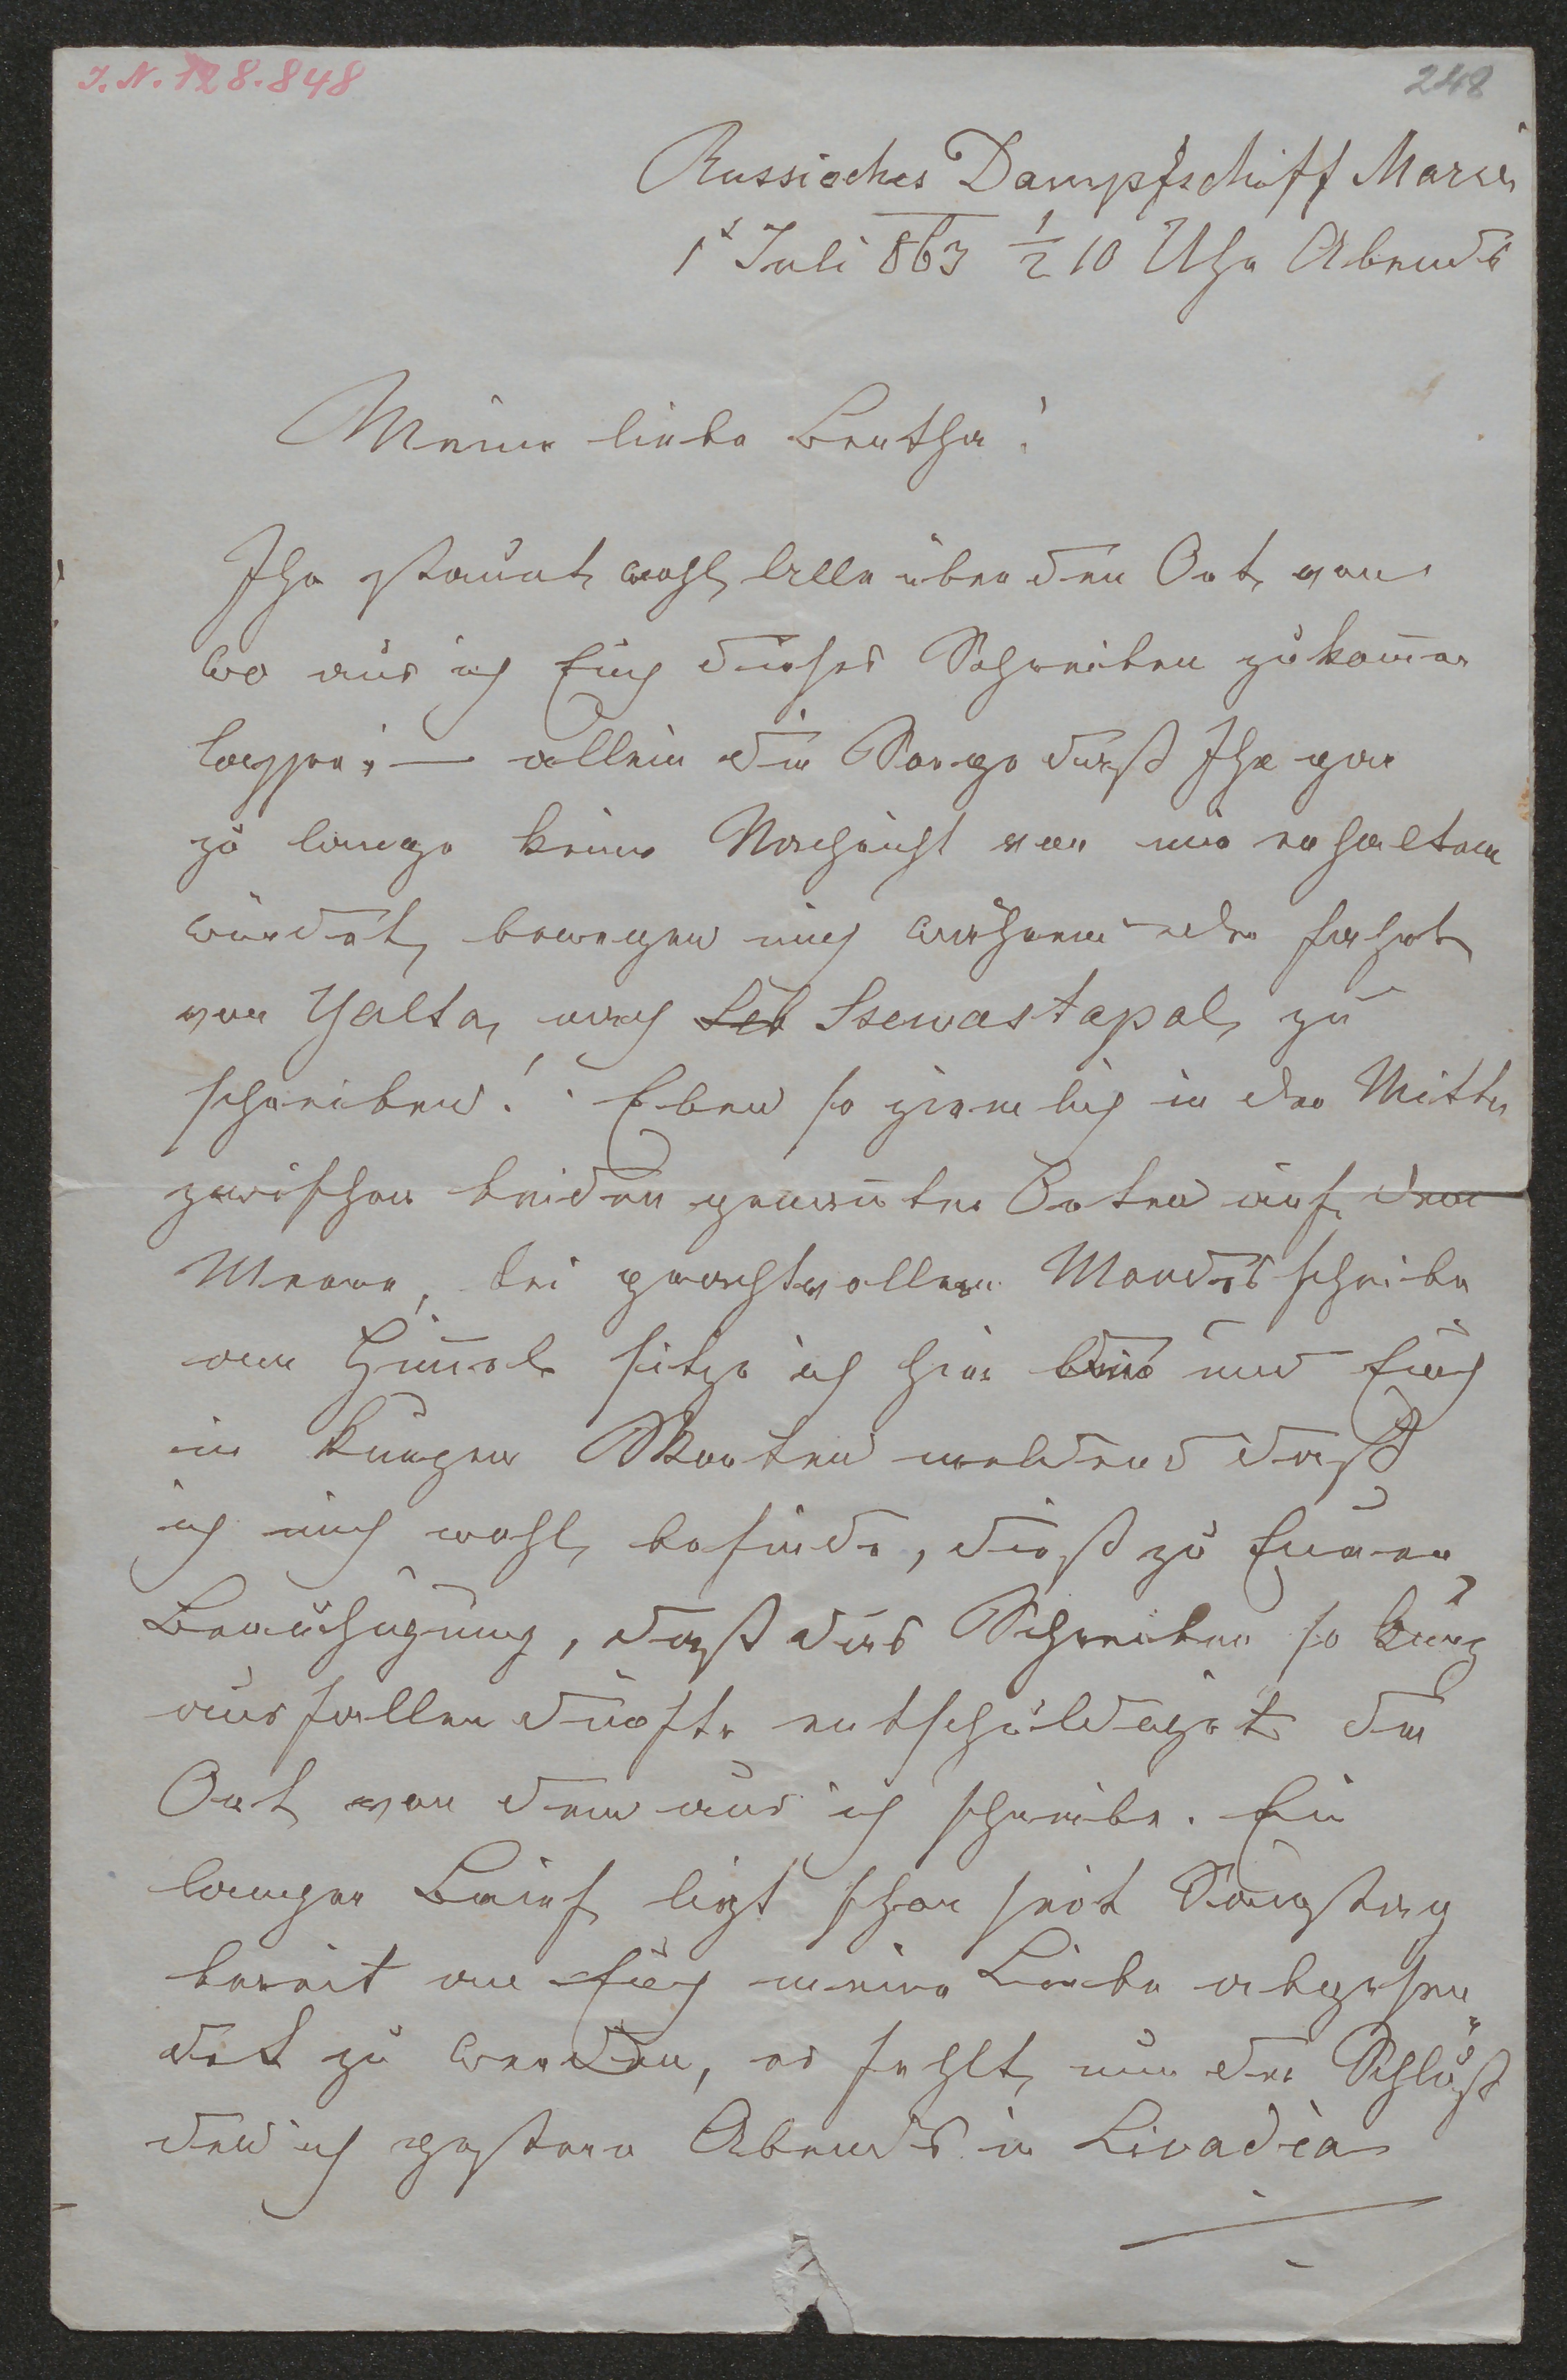 J. N. 128.848
248
Russisches Dampfschiff
1t Juli 863 ½ 10 Uhr Abends
Meine liebe Bertha!
Ihr staunt wohl Alle über den Ort von
wo aus ich Euch dieses Schreiben zukom̅en
lasse; — allein die Sorge daß Ihr gar
zu lange keine Nachricht von mir erhalten
würdet, bewegen mich während der Fahrt
von Yalta nach Seb Ssewastapol zu
schreiben! Eben so ziemlich in der Mitte
zwischen beiden genan̅ten Orten auf dem
Meere, bei prachtvoller Mondesscheibe
am Him̅el sitze ich hier und Euch
in kurzen Worten meldend daß
ich mich wohl befinde, dieß zu Eurer
Beruhigung, daß das Schreiben so kurz
ausfallen dürfte entschuldiget der
Ort von dem aus ich schreibe. Ein
langer Brief ligt schon seit Samstag
bereit an Euch meine Liebe abgesen
det zu werden, es fehlt nur der Schluß
den ich gestern Abends in Livadia